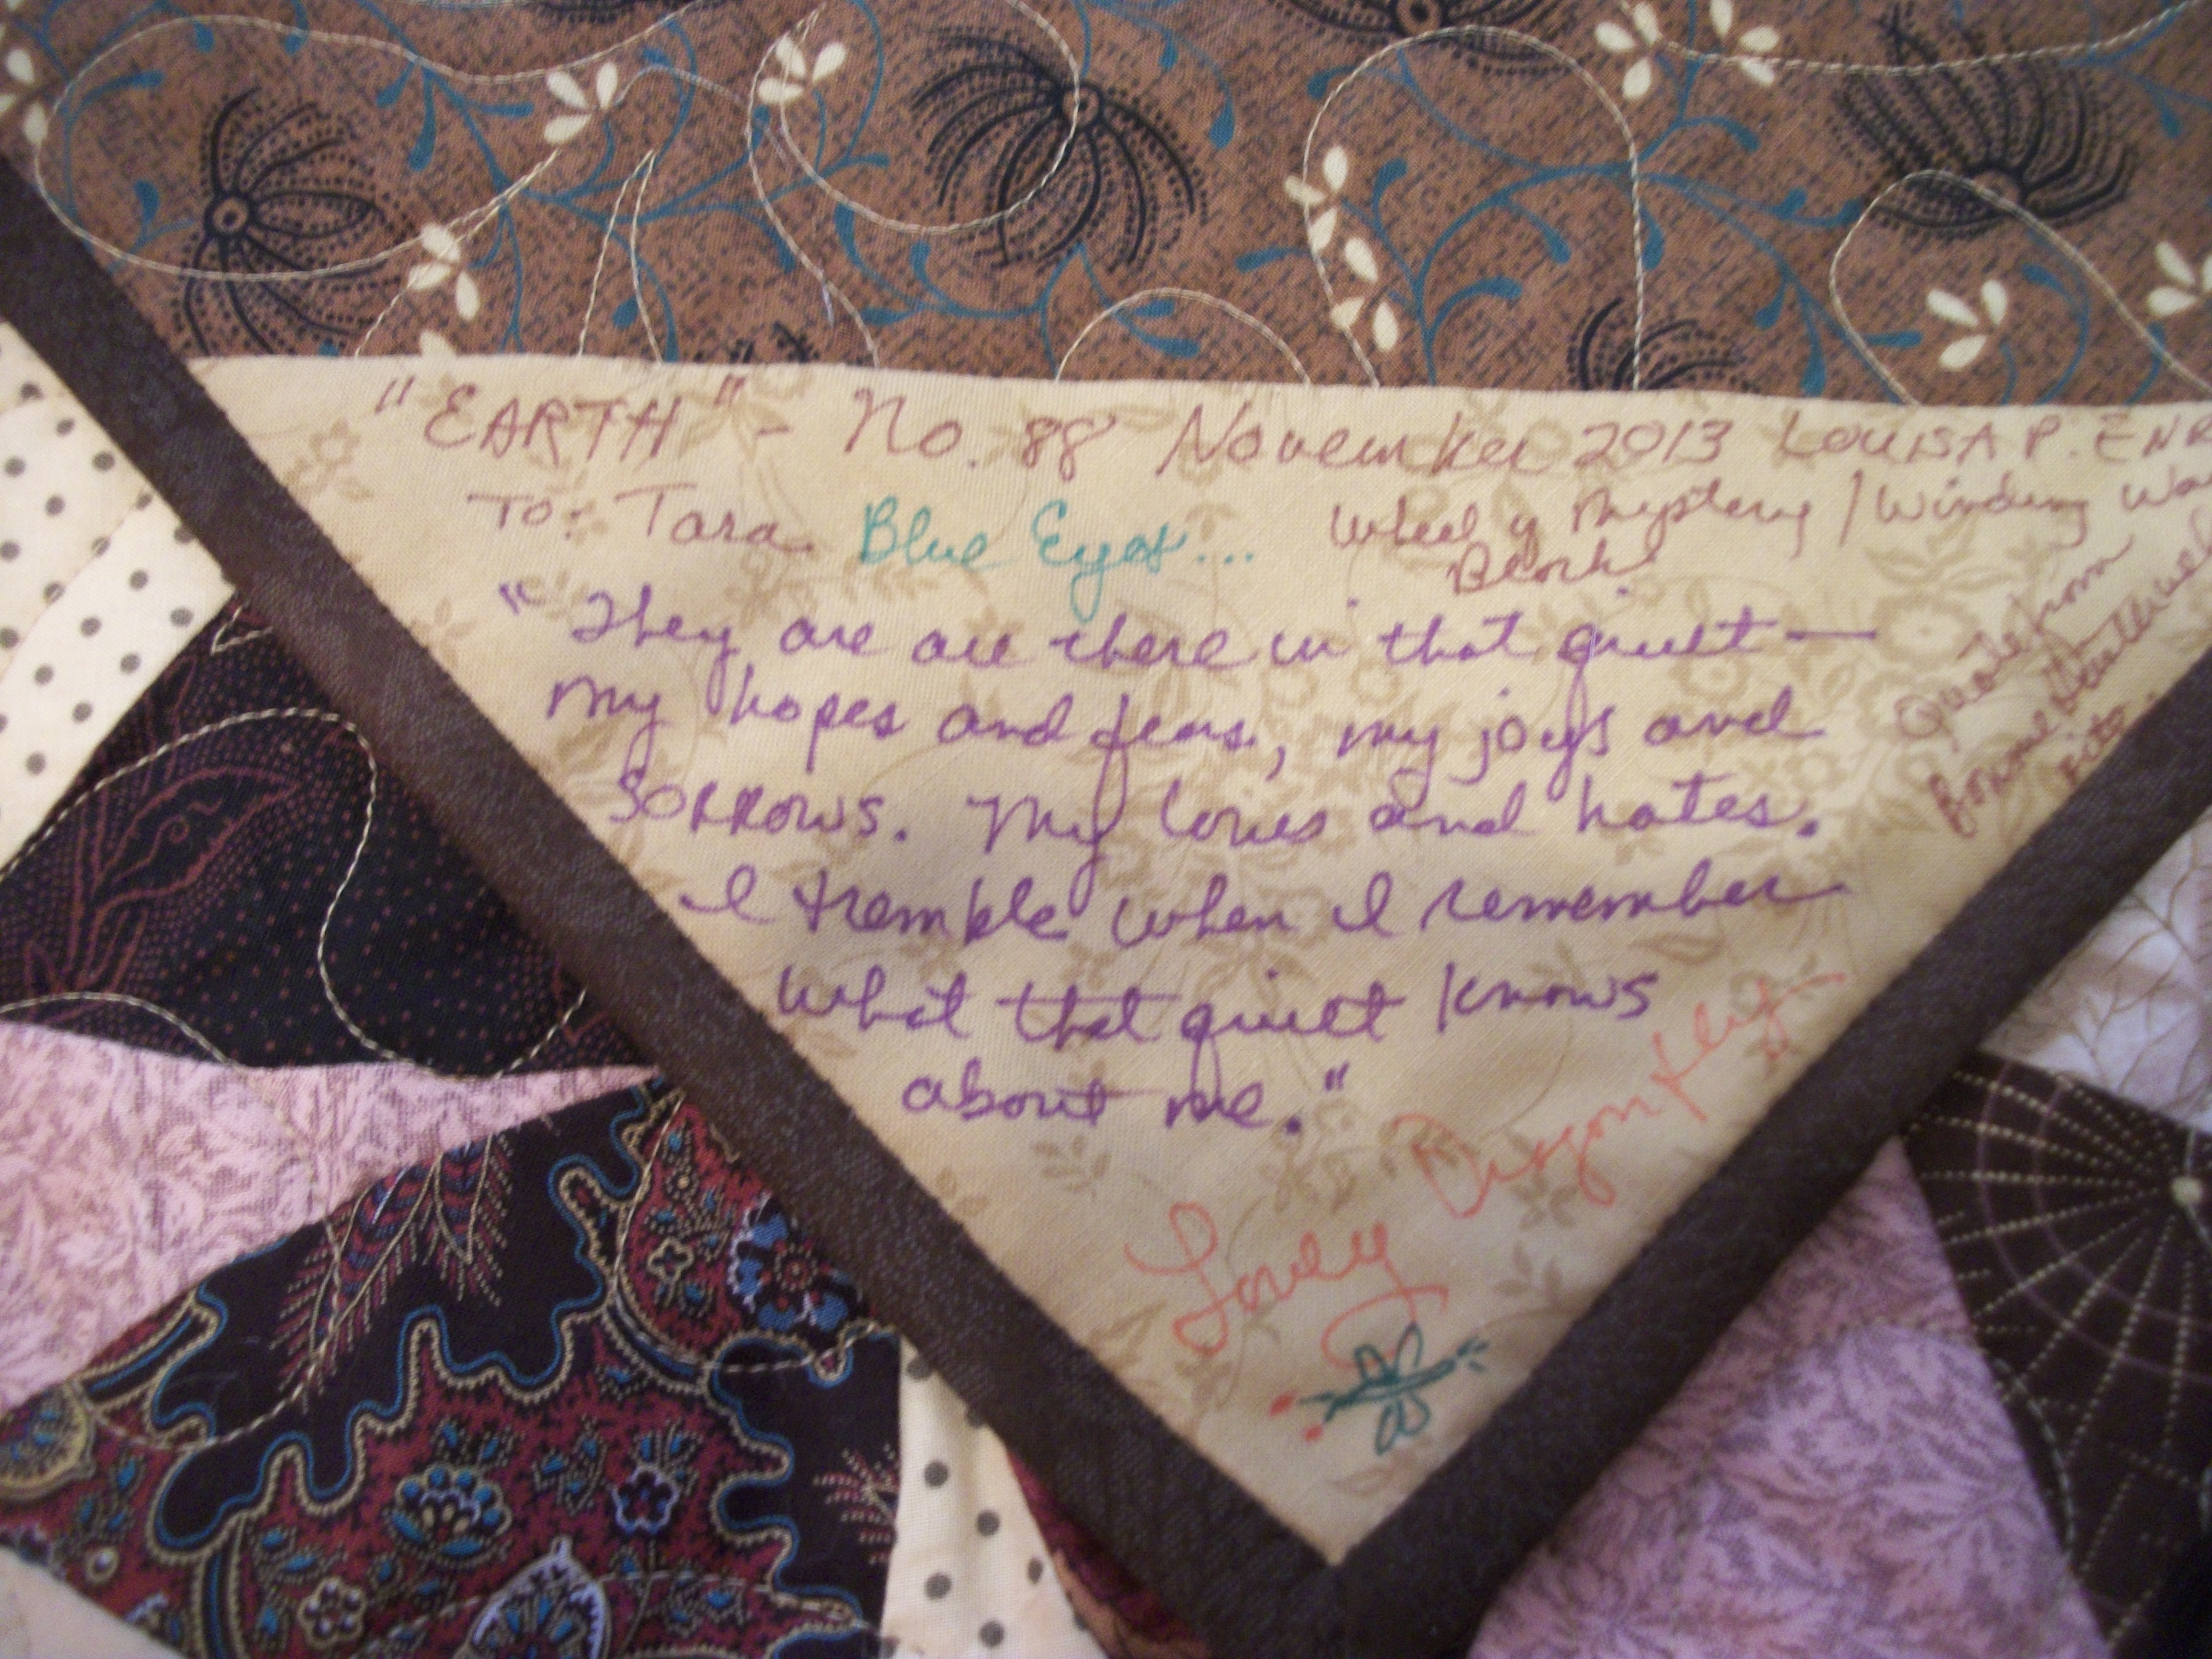 "EARTH" - No. 88 November 2013 LOUISA P. EN
To: Tara Blue Eyes... Wheel of Mystery / Winding Wa
Block
"They are all there in that quiet —
my hopes and fears, my joys and
SORROWS. My loves and hates.
I tremble when I remember
what that quiet knows
about me."
Quote from
Bonnie
Lovely Dragonfly